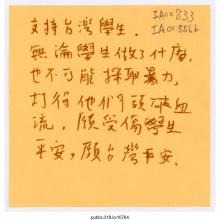 IA00833
IA00556b
支持台灣學生.
無論學生做了什麼,
也不可能採取暴力,
打得他們頭破血
流, 願受傷學生
平安, 願台灣平安.
public.318.io/10764